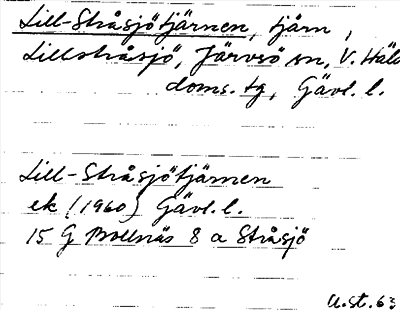 Lill-Stråsjötjärnen, tjärn,
Lillstråsjö, Järvsö sn, V. Häls
doms. tg, Gävl. l.
Lill-Stråsjötjärnen
ek (1960) Gävl. l.
15 G Bollnäs 8 a Stråsjö
U. St. 63